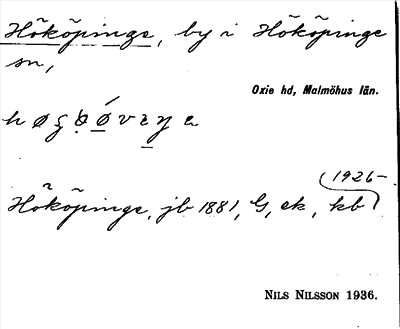 Hököpinge, by i Hököpinge
sn,
Oxie hd, Malmöhus län.
Hököpinge, jb 1881, G, ek, kb
(1926–)
NILS NILSSON 1936.